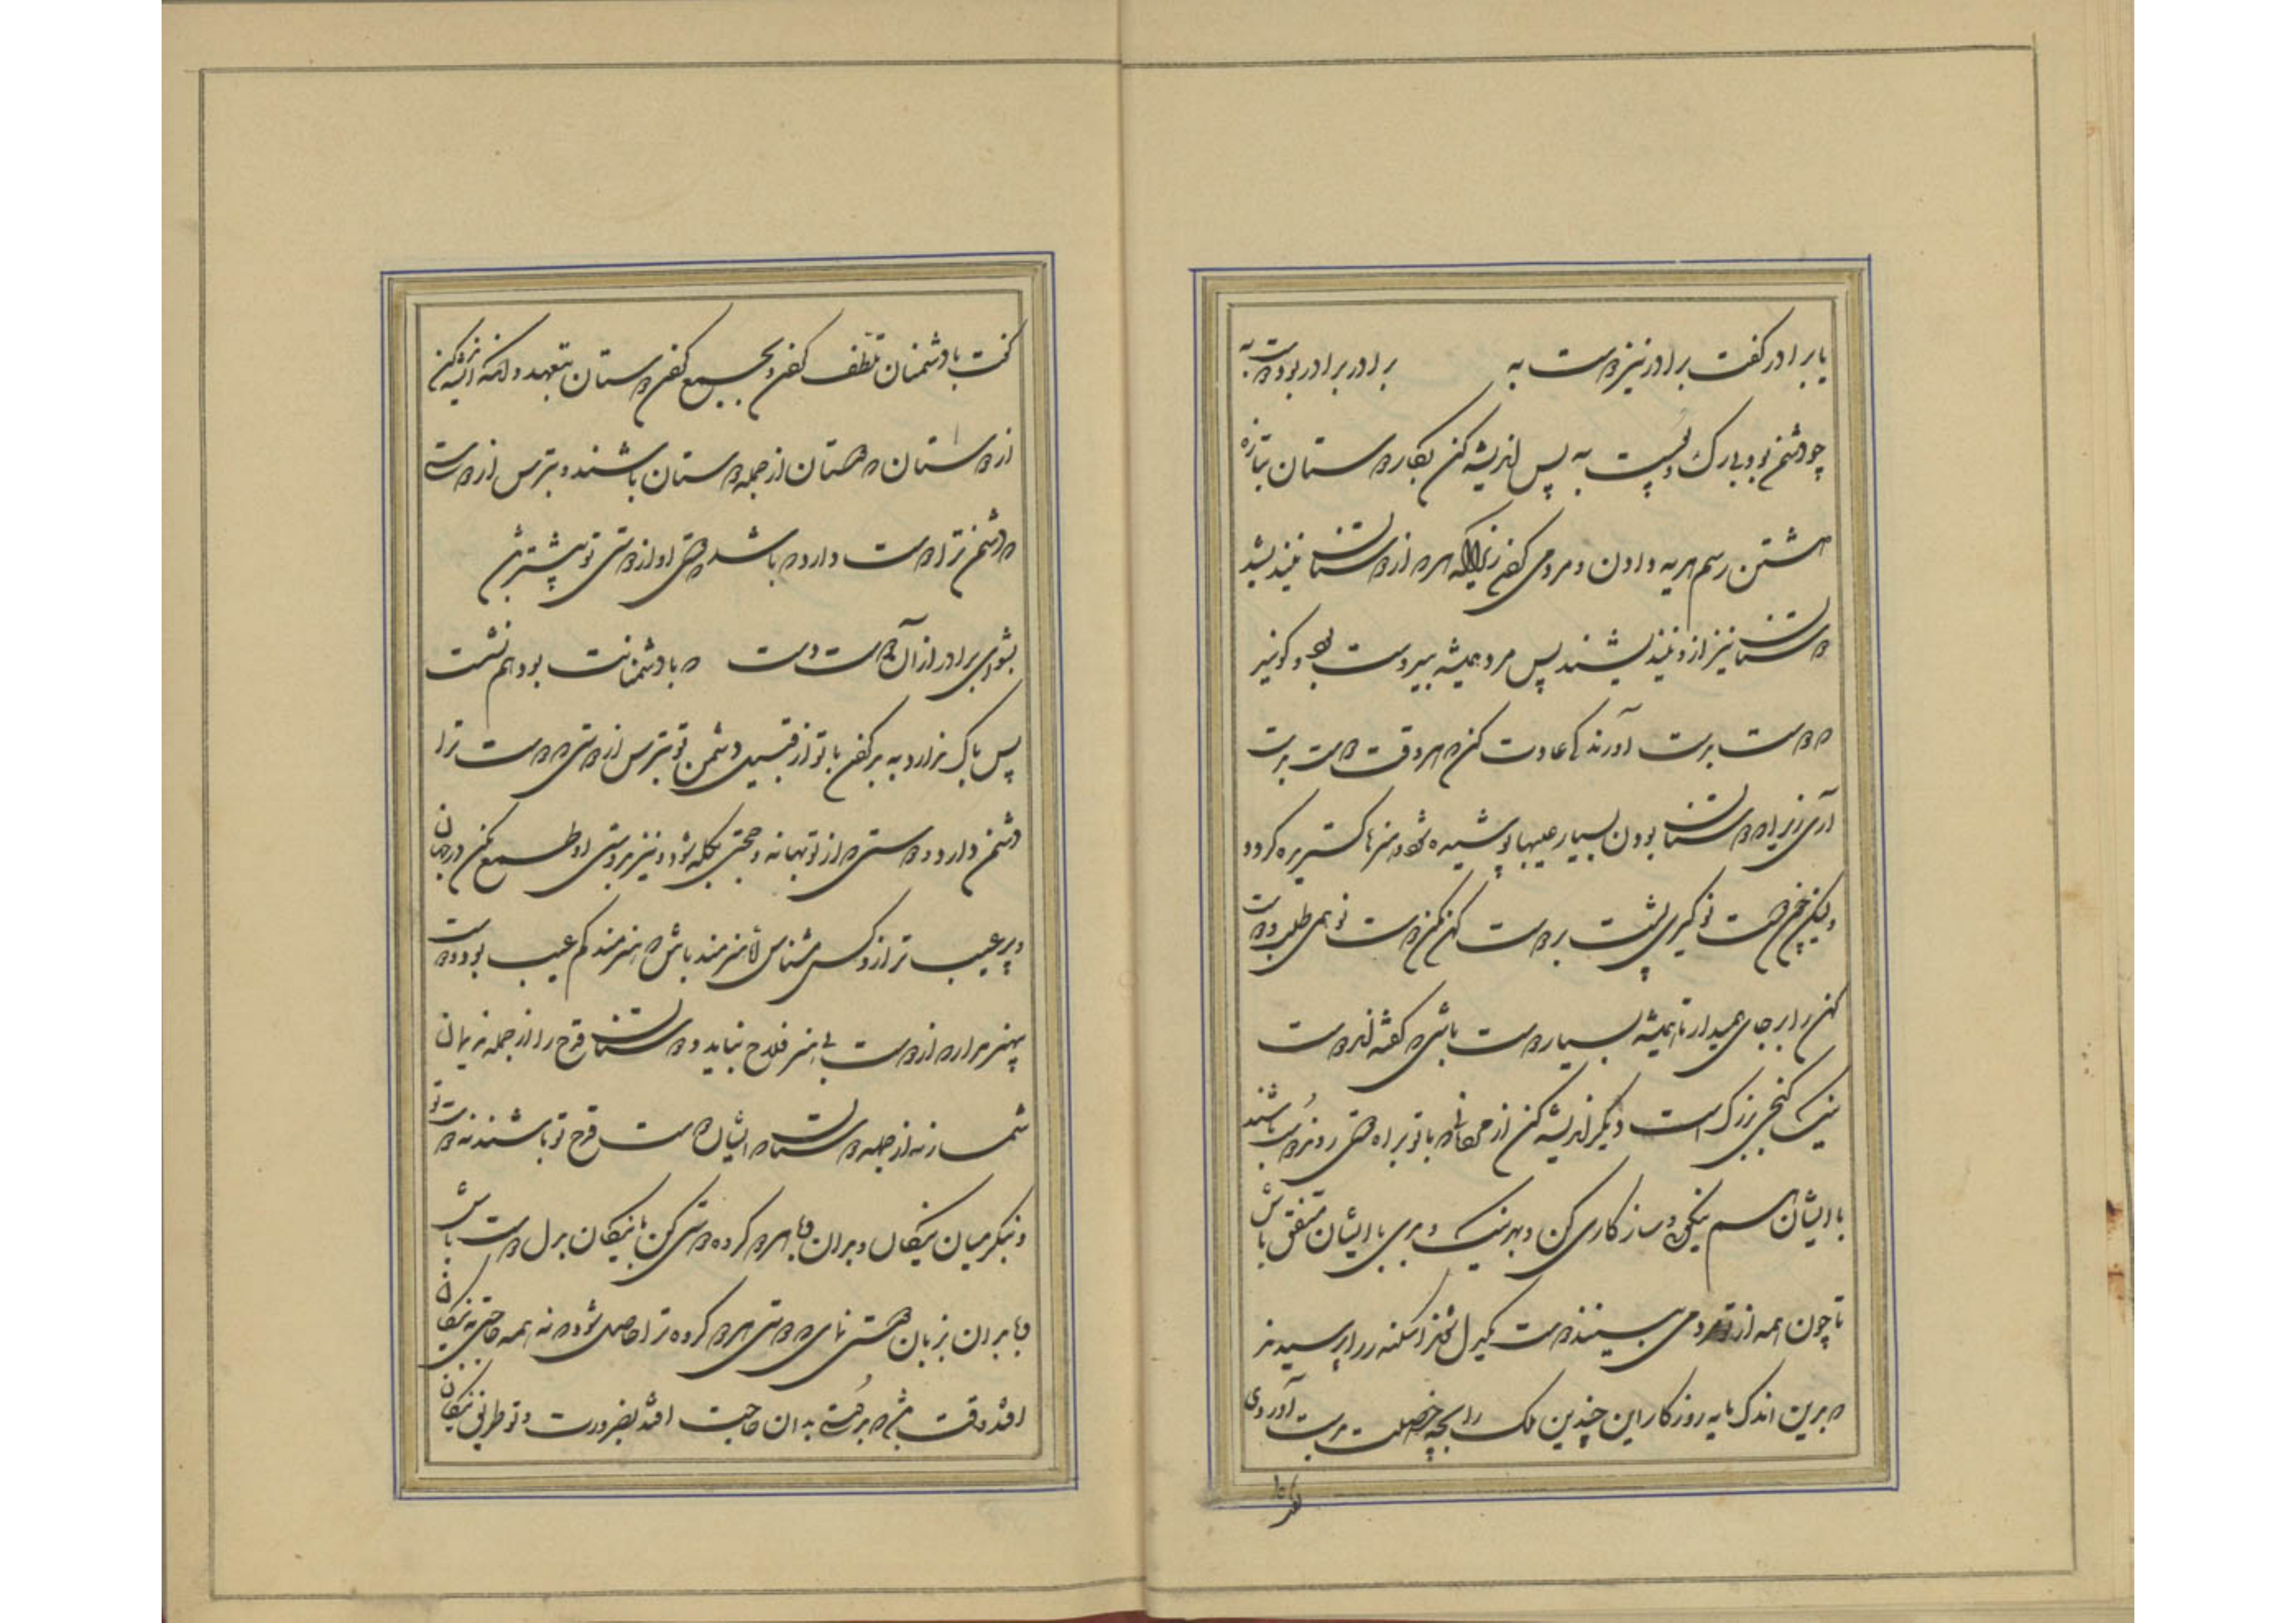 یا برادر گفت برادر نیز دوست به برادر برادر بود دوست به
چو دشمن بود بی رگ و پوست به پس اندیشه کن بکار دوستان بتازه
داشتن رسم هدیه دادن و مردمی کردن زیرا که هر که از دوستان نیندیشد
دوستان نیز ازو نیندیشند پس مرد همیشه بی دوست بود و گویند
که دوست بدست آورنده عادت کن که هر وقت دوست بدست
آری زیرا که دوستان بودن بسیار عیبها پوشیده شود و هنرها گستریده گردد
ولیکن چون دوست نو گیری پشت بر دوست کهن مکن دوست نو همی طلب و دوست
کهن را بر جای میدار تا همیشه بسیار دوست باشی که گفته‌اند دوست
نیک گنجی بزرگ است دیگر اندیشه کن از مردمانی که با تو براه دوستی روند و نیم دوست باشند
با ایشان رسم نیکویی و سازگاری کن و بهر نیک و بدی با ایشان متفق باش
تا چون همه از تو مردمی بینند دوست یکدل شوند اسکندر را پرسیدند
که بدین اندک مایه روزگار این چندین ملک را بچه خصلت بدست آوردی
گفت بادشمنان تلطف کردن و بجمع کردن دوستان بتعهد و آنکه اندیشه کن
از دوستان که دوستان از جمله دوستان باشند و بترس از دوستی
که دشمن ترا دوست دارد که باشد که دوستی او از دوستی تو بیشتر باشد
بشو ای برادر از آن دوست دست که با دشمنانت بود هم نشست
پس باک ندارد به بد کردن با تو از قبل دشمن تو بترس از دوستی که دوست ترا
دشمن دارد و دوستی که از تو بهانه و حجتی بگله شود و نیز بدوستی او طمع مکن در جهان
و بی عیب تر از وی کس مشناس اما هنرمند باش که هنرمند کم عیب بود و دوست
بی هنر مدار که از دوست بی هنر فلاح نیاید و دوستان قدح را از جمله ندیمان
شمار نه از جمله دوستان که ایشان دوست قدح تو باشند نه دوست تو
و بنگر میان نیکان و بدان و با هر دو گروه دوستی کن با نیکان بدل دوست باش
و با بدان بزبان دوستی نمای که دوستی هر دو گروه ترا حاصل شود که نه همه حاجتی به نیکان
افتد وقت باشد که بدوستی بدان حاجت افتد بضرورت و تو طریق نیکان